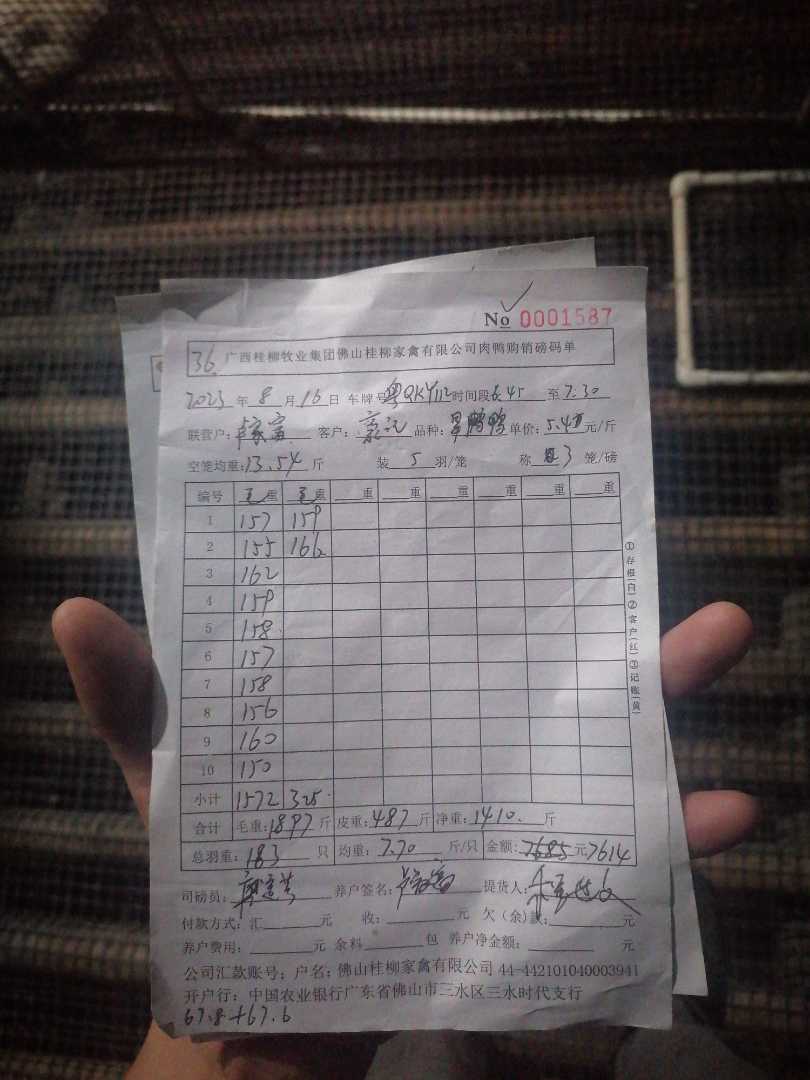 No 0001587
36 广西桂柳牧业集团佛山桂柳家禽有限公司肉鸭购销磅码单
2023年8月16日 车牌号粤QKY112时间段6.45至7.30
联营户: 客户: 品种: 鸭 单价:5.4元/斤
空笼均重:13.54斤 装5羽/笼 称3笼/磅
编号 毛重 毛重 重 重 重 重 重 重
1 157 159
2 155 166
3 162
4 159
5 158
6 157
7 158
8 156
9 160
10 150
小计 1572 325
合计 毛重:1897斤 皮重:487斤 净重:1410.斤
总羽重:183只 均重:7.70斤/只 金额:7685元7614
司磅员: 养户签名: 提货人:
付款方式:汇 元 收: 元 欠(余)款: 元
养户费用: 元 余料 包 养户净金额: 元
公司汇款账号:户名:佛山桂柳家禽有限公司 44-442101040003941
开户行:中国农业银行广东省佛山市三水区三水时代支行
67.8+67.6
①存根(白)②客户(红)③记账(黄)